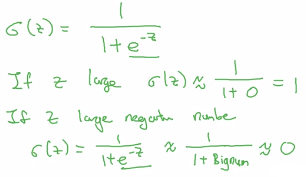 σ(z) = 1 / (1 + e^{-z})
If z large σ(z) ≈ 1 / (1 + 0) = 1
If z large negative number
σ(z) = 1 / (1 + e^{-z}) ≈ 1 / (1 + Bignum) ≈ 0